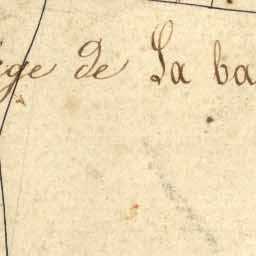 ige de La ba